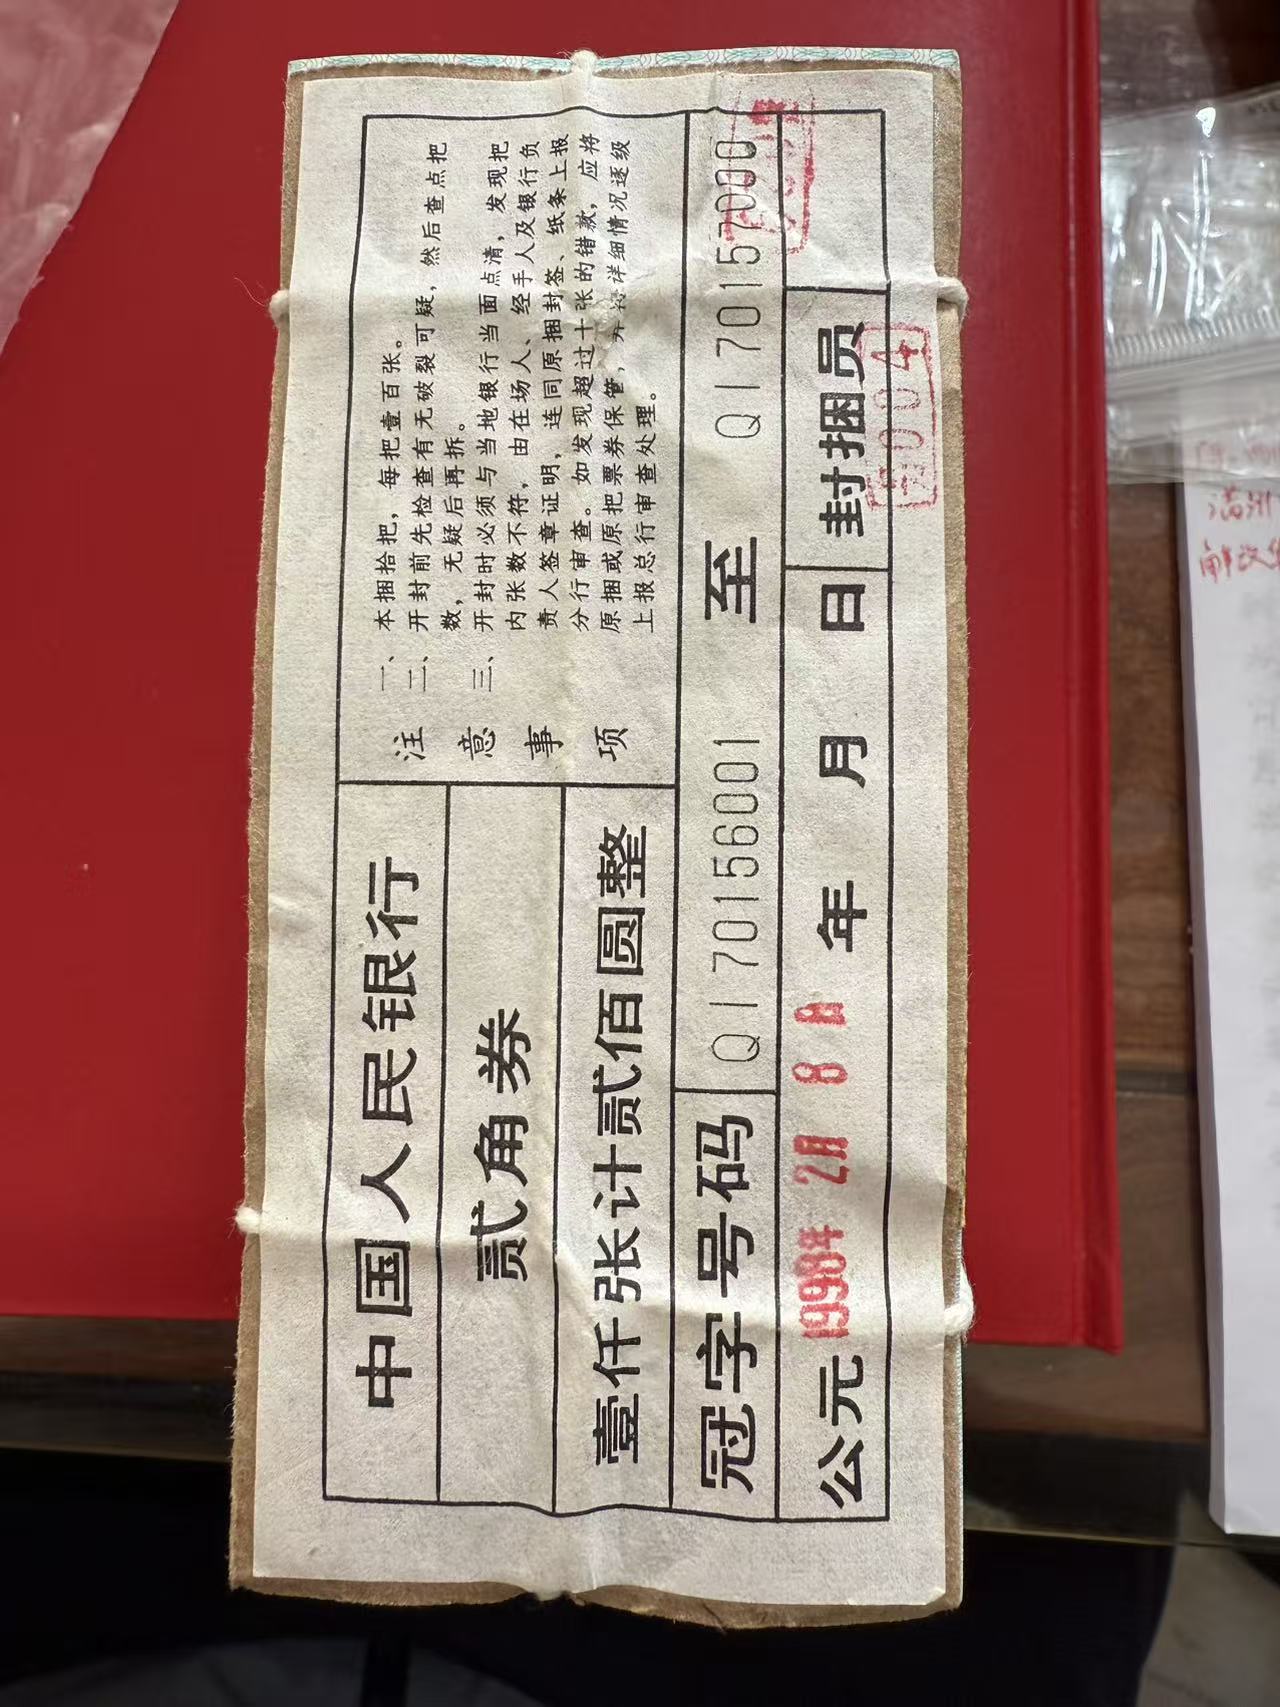 中国人民银行
贰角券
壹仟张计贰佰圆整
注意事项
一、本捆拾把，每把壹百张。
二、开封前先检查有无破裂可疑，然后查点把
数，无疑后再拆。
三、开封时必须与当地银行当面点清，发现把
内张数不符，由在场人、经手人及银行负
责人签章证明，连同原捆封签、纸条上报
分行审查。如发现超过十张的错款，应将
原捆或原把票券保管，并将详细情况逐级
上报总行审查处理。
冠字号码 QI70156001 至 QI70157000
公元 1998年 2月 8日 年 月 日 封捆员
004
满洲